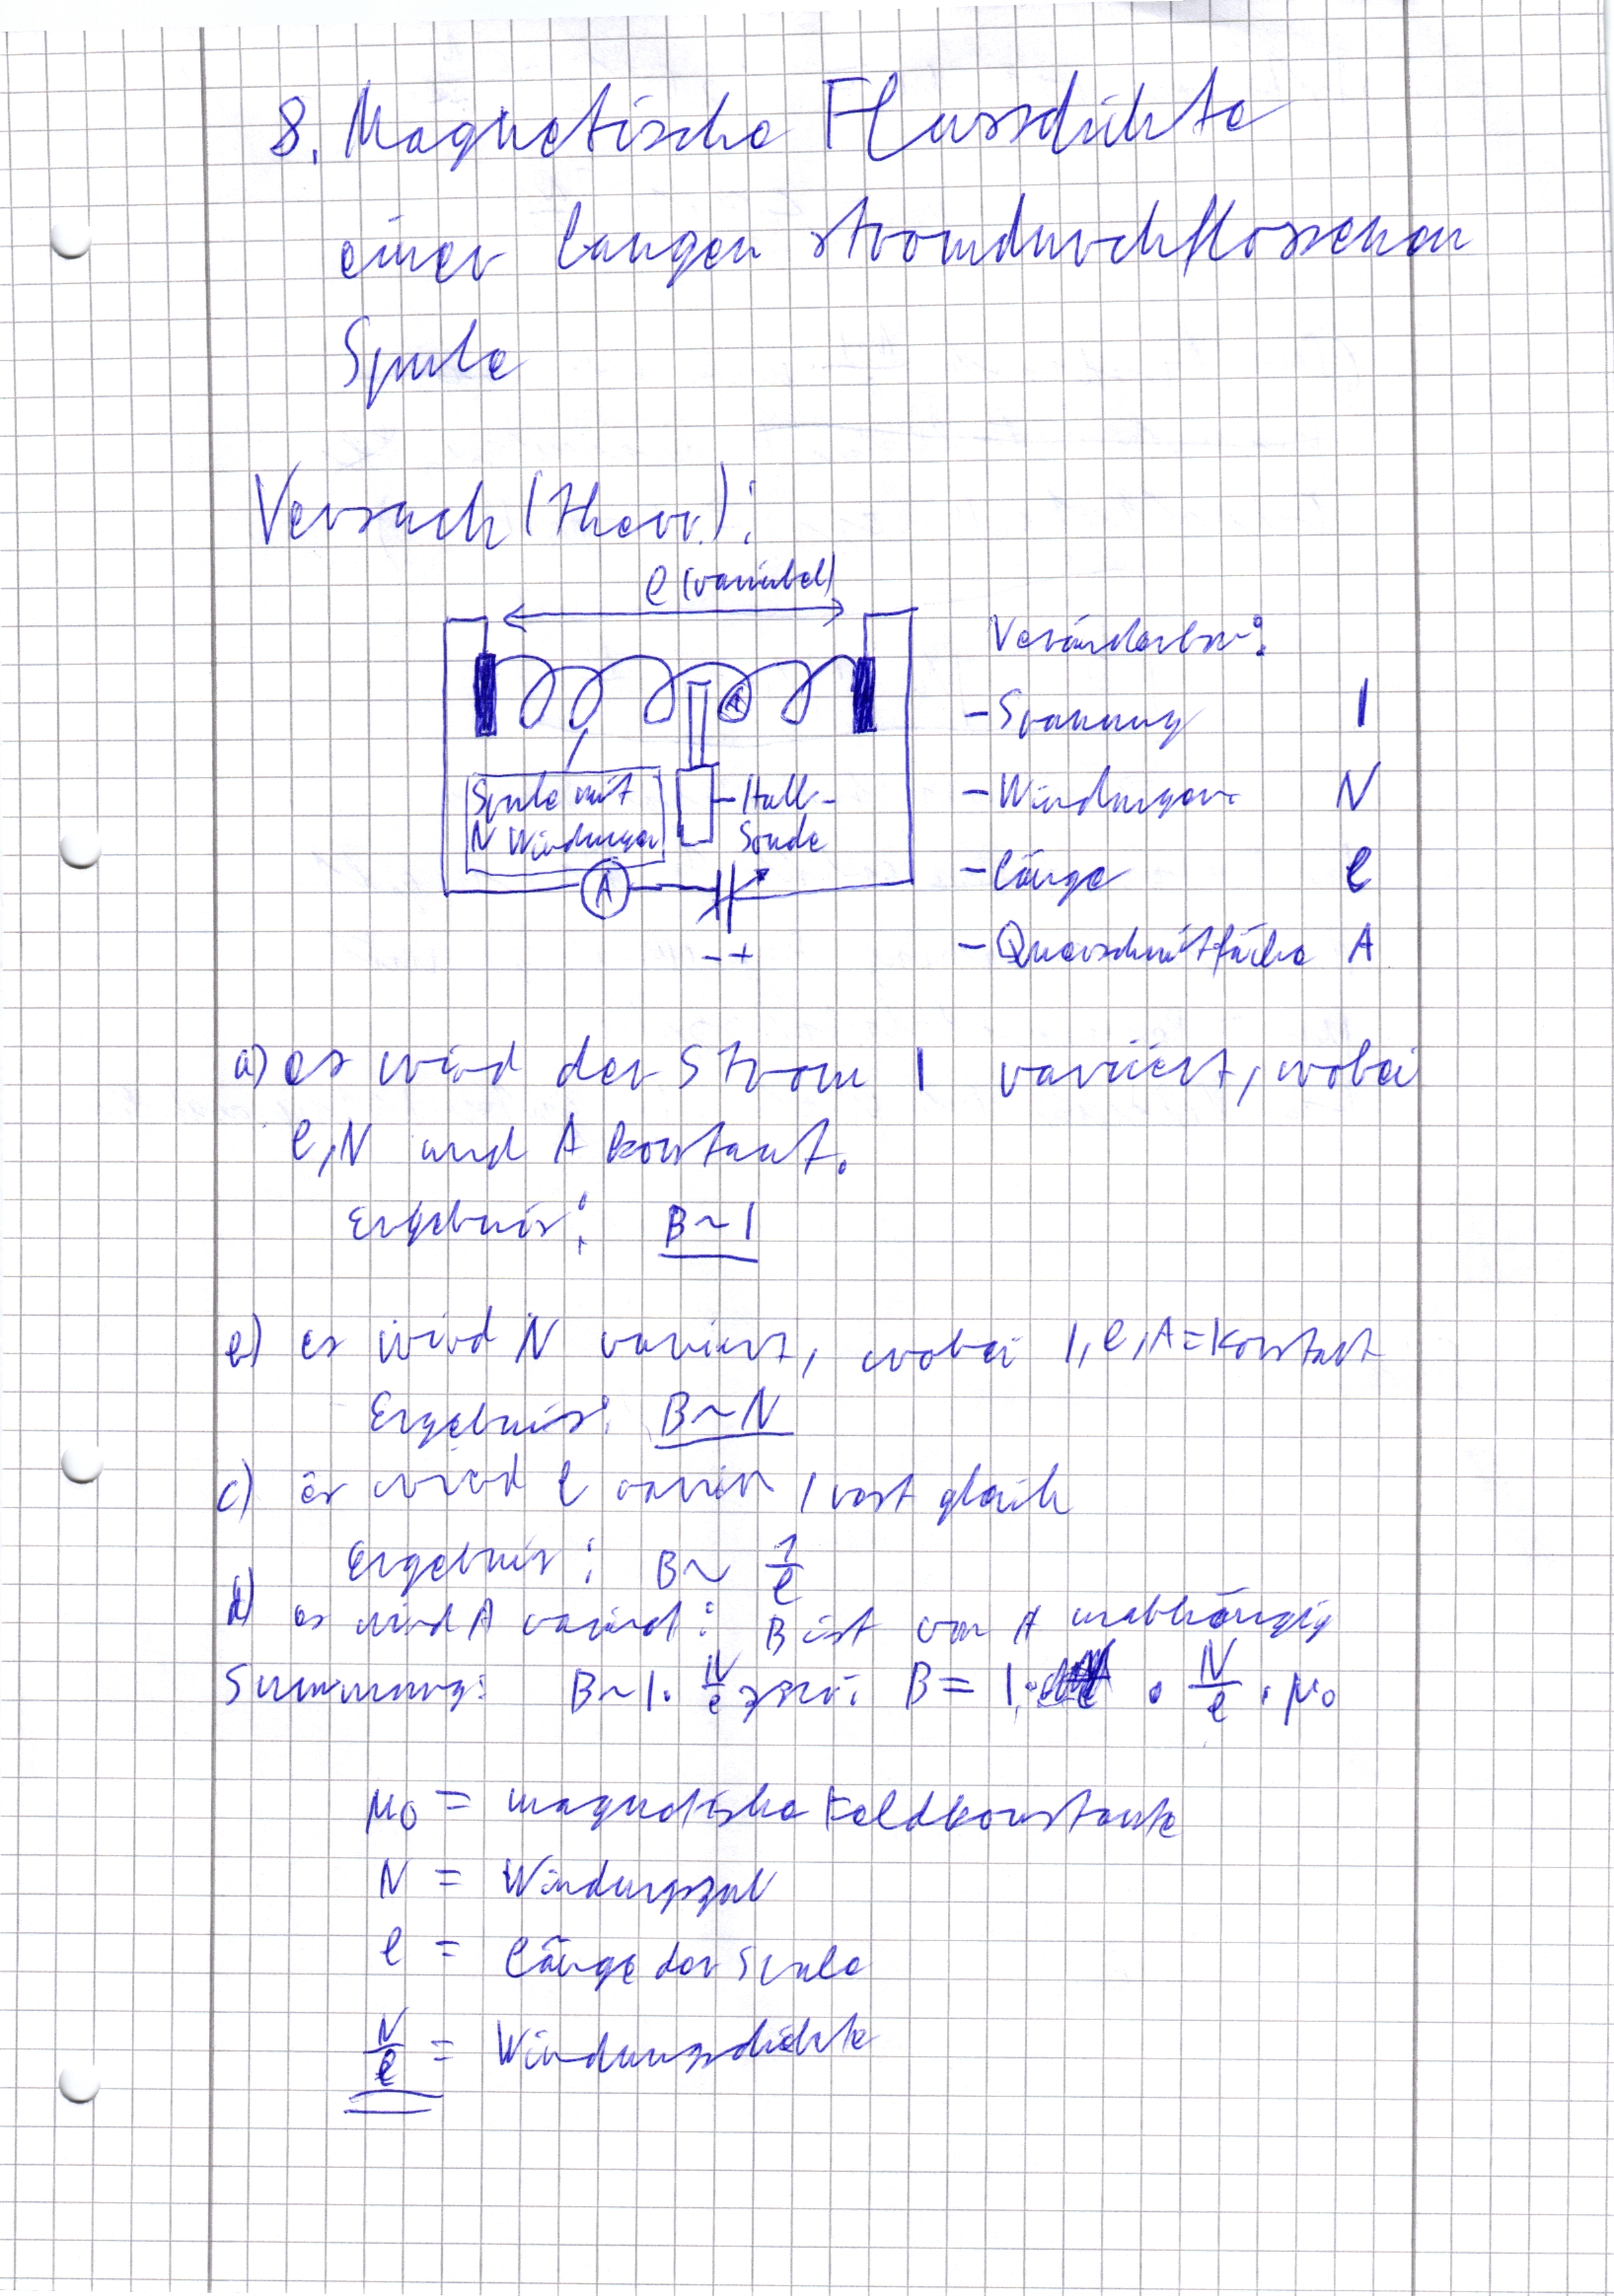 8. Magnetische Flussdichte
einer langen stromdurchflossenen
Spule
Versuch (theor.):
l (variabel)
A
Spule mit
N Windungen
Hall-
Sonde
A
- +
Veränderbar:
- Spannung I
- Windungen N
- länge l
- Querschnittfläche A
a) es wird der Strom I variiert, wobei
l, N und A konstant.
Ergebnis: B ~ I
b) es wird N variiert, wobei I, l, A = konstant
Ergebnis: B ~ N
c) es wird l variier, rest gleich
Ergebnis: B ~ 1/l
d) es wird A variiert: B ist von A unabhängig
B ~ I · N/l B = I · N/l · μ₀
μ₀ = magnetische Feldkonstante
N = Windungszal
l = länge der Spule
N/l = Windungsdichte